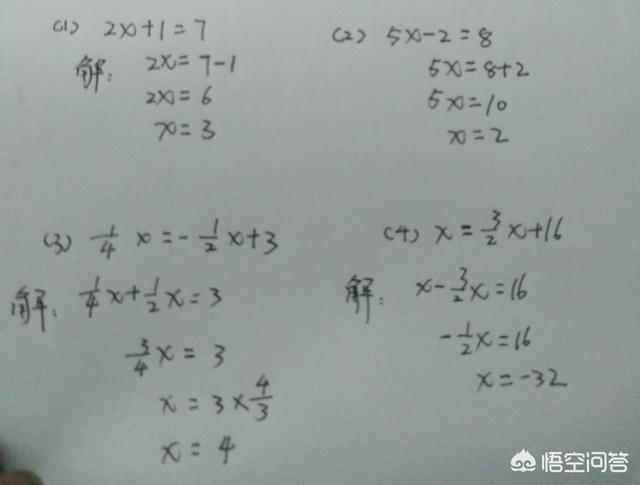 (1) 2x+1=7
解: 2x=7-1
2x=6
x=3
(2) 5x-2=8
5x=8+2
5x=10
x=2
(3) 1/4 x=-1/2 x+3
解: 1/4 x+1/2 x=3
3/4 x=3
x=3×4/3
x=4
(4) x=3/2 x+16
解: x-3/2 x=16
-1/2 x=16
x=-32
悟空问答